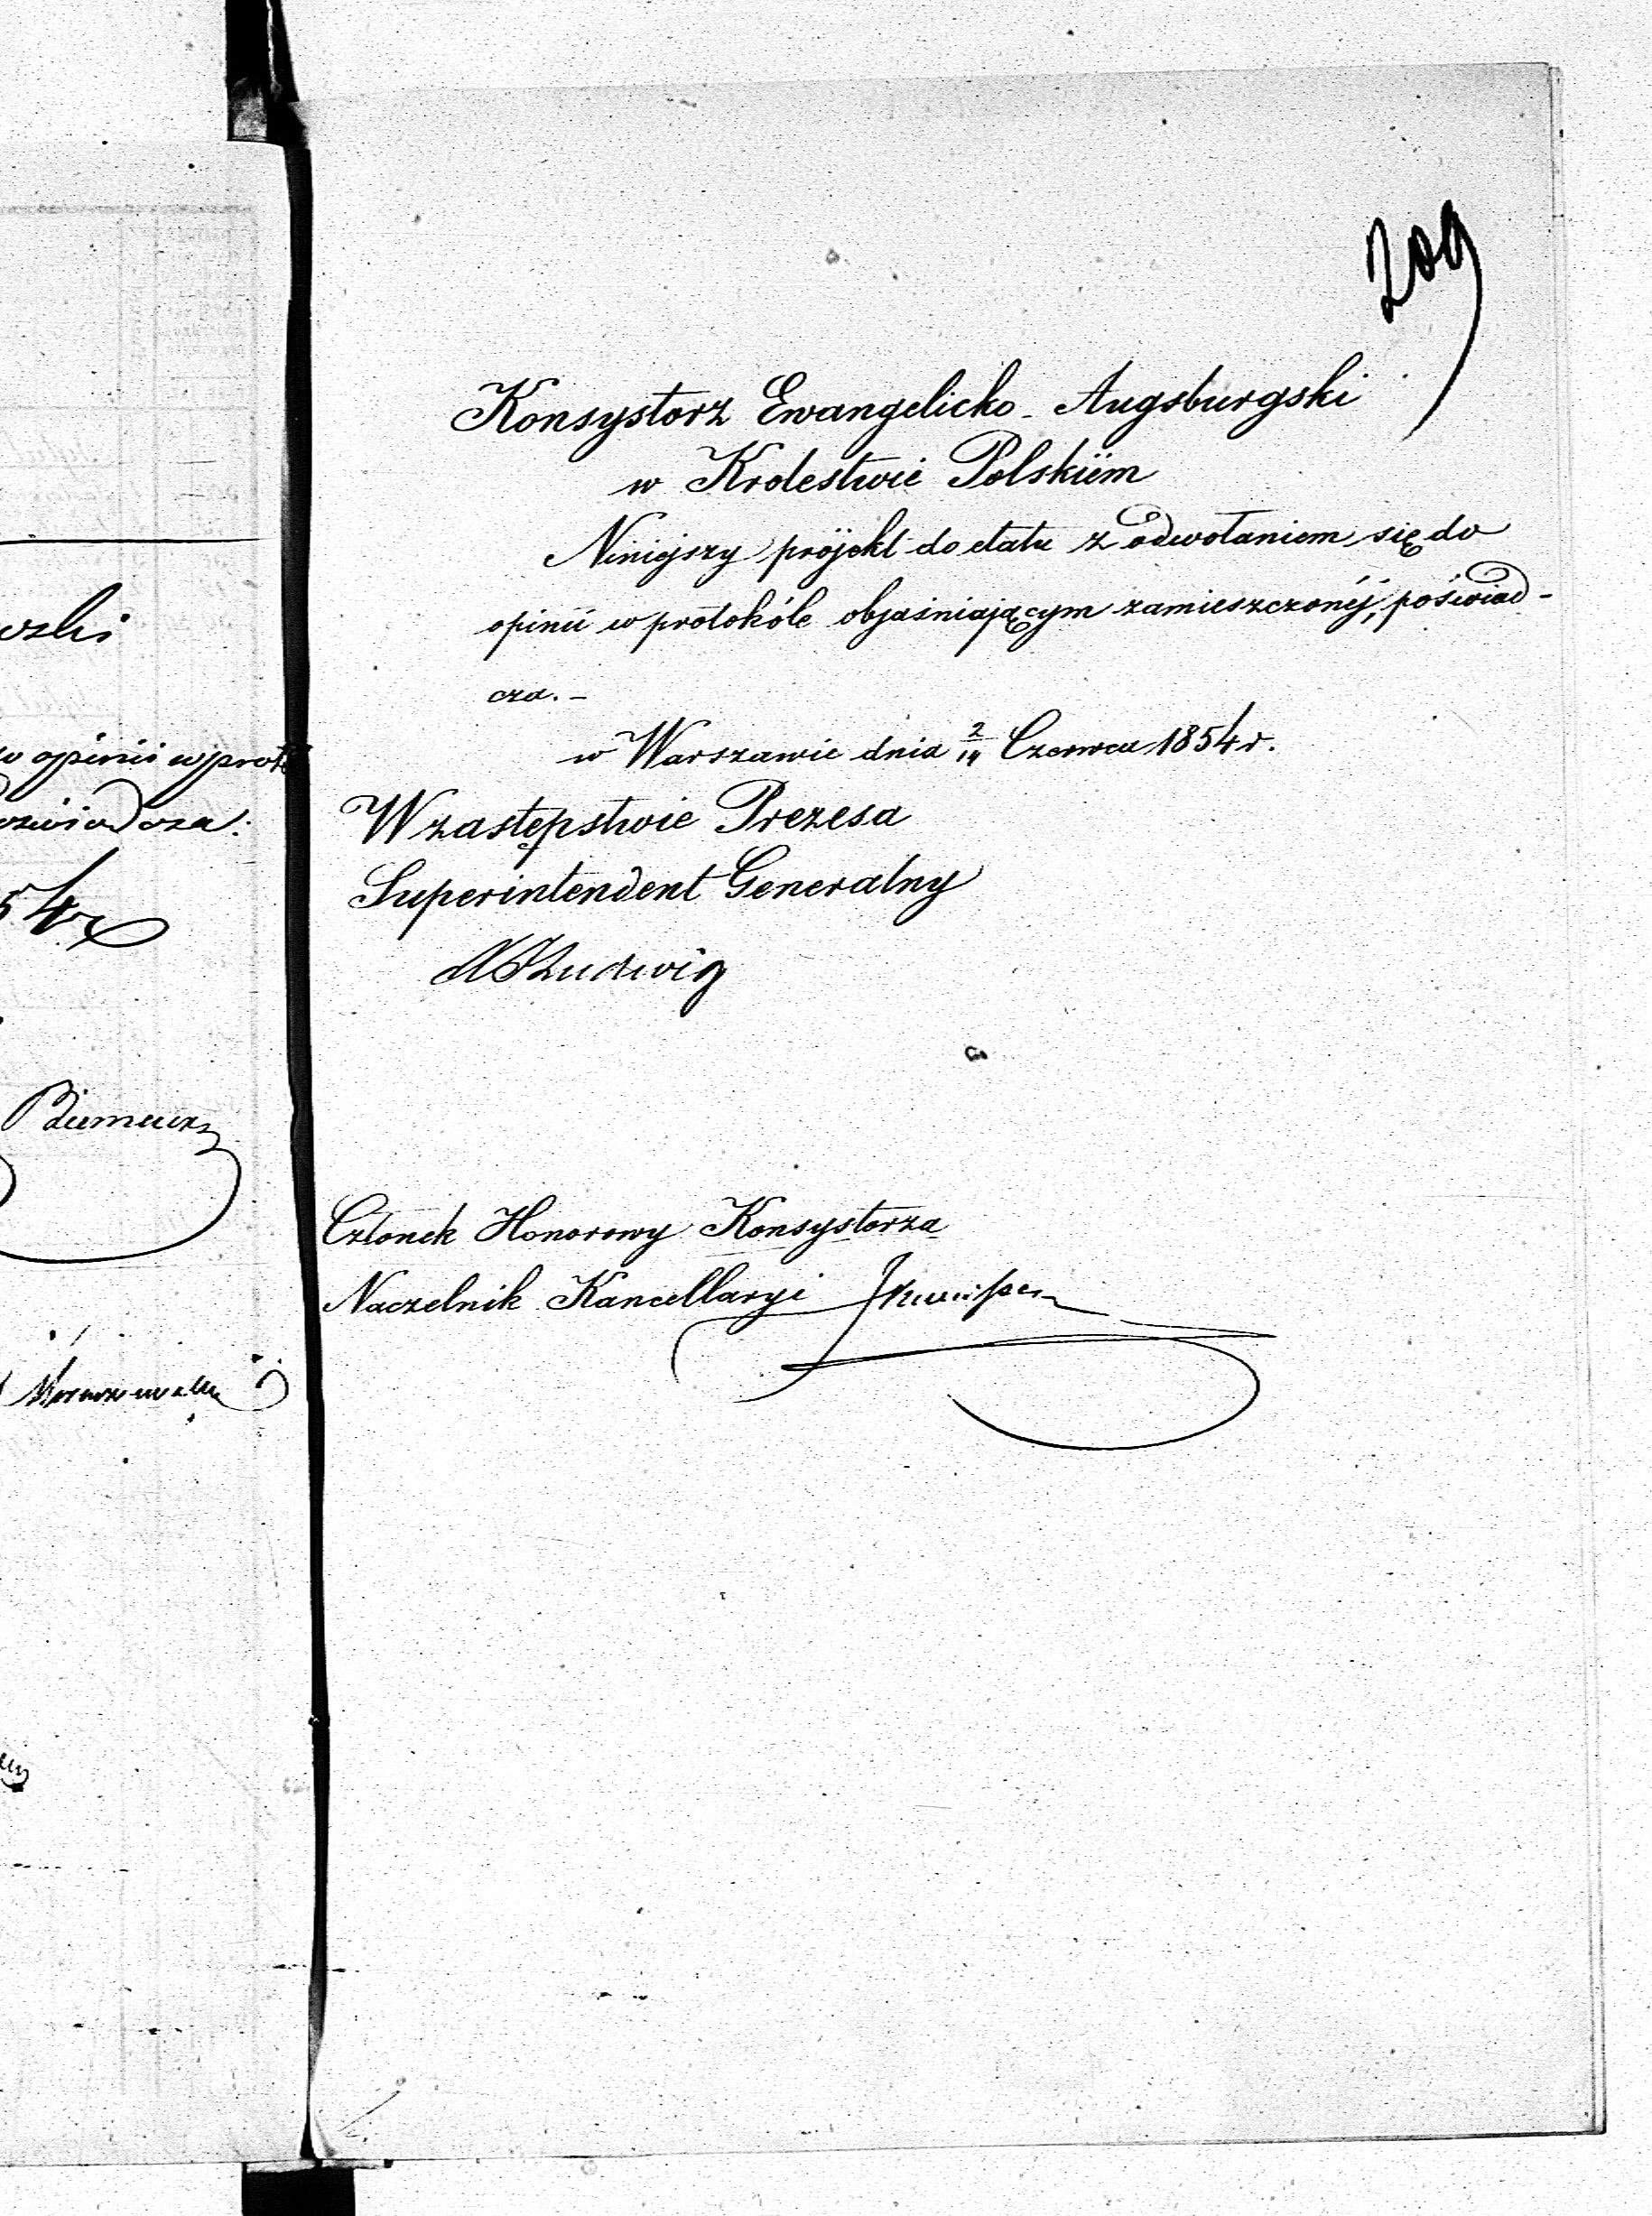 209
Konsystorz Ewangelicko-Augsburgski
w Krolestwie Polskiem
Niniejszy projekt do etatu z odwołaniem się do
opinii w protokóle objaśniającym zamieszczonéj, poświad-
cza. -
w Warszawie dnia 2/14 Czerwca 1854 r.
W zastępstwie Prezesa
Superintendent Generalny
Ludwig
Członek Honorowy Konsystorza
Naczelnik Kancellaryi
opinii w proto